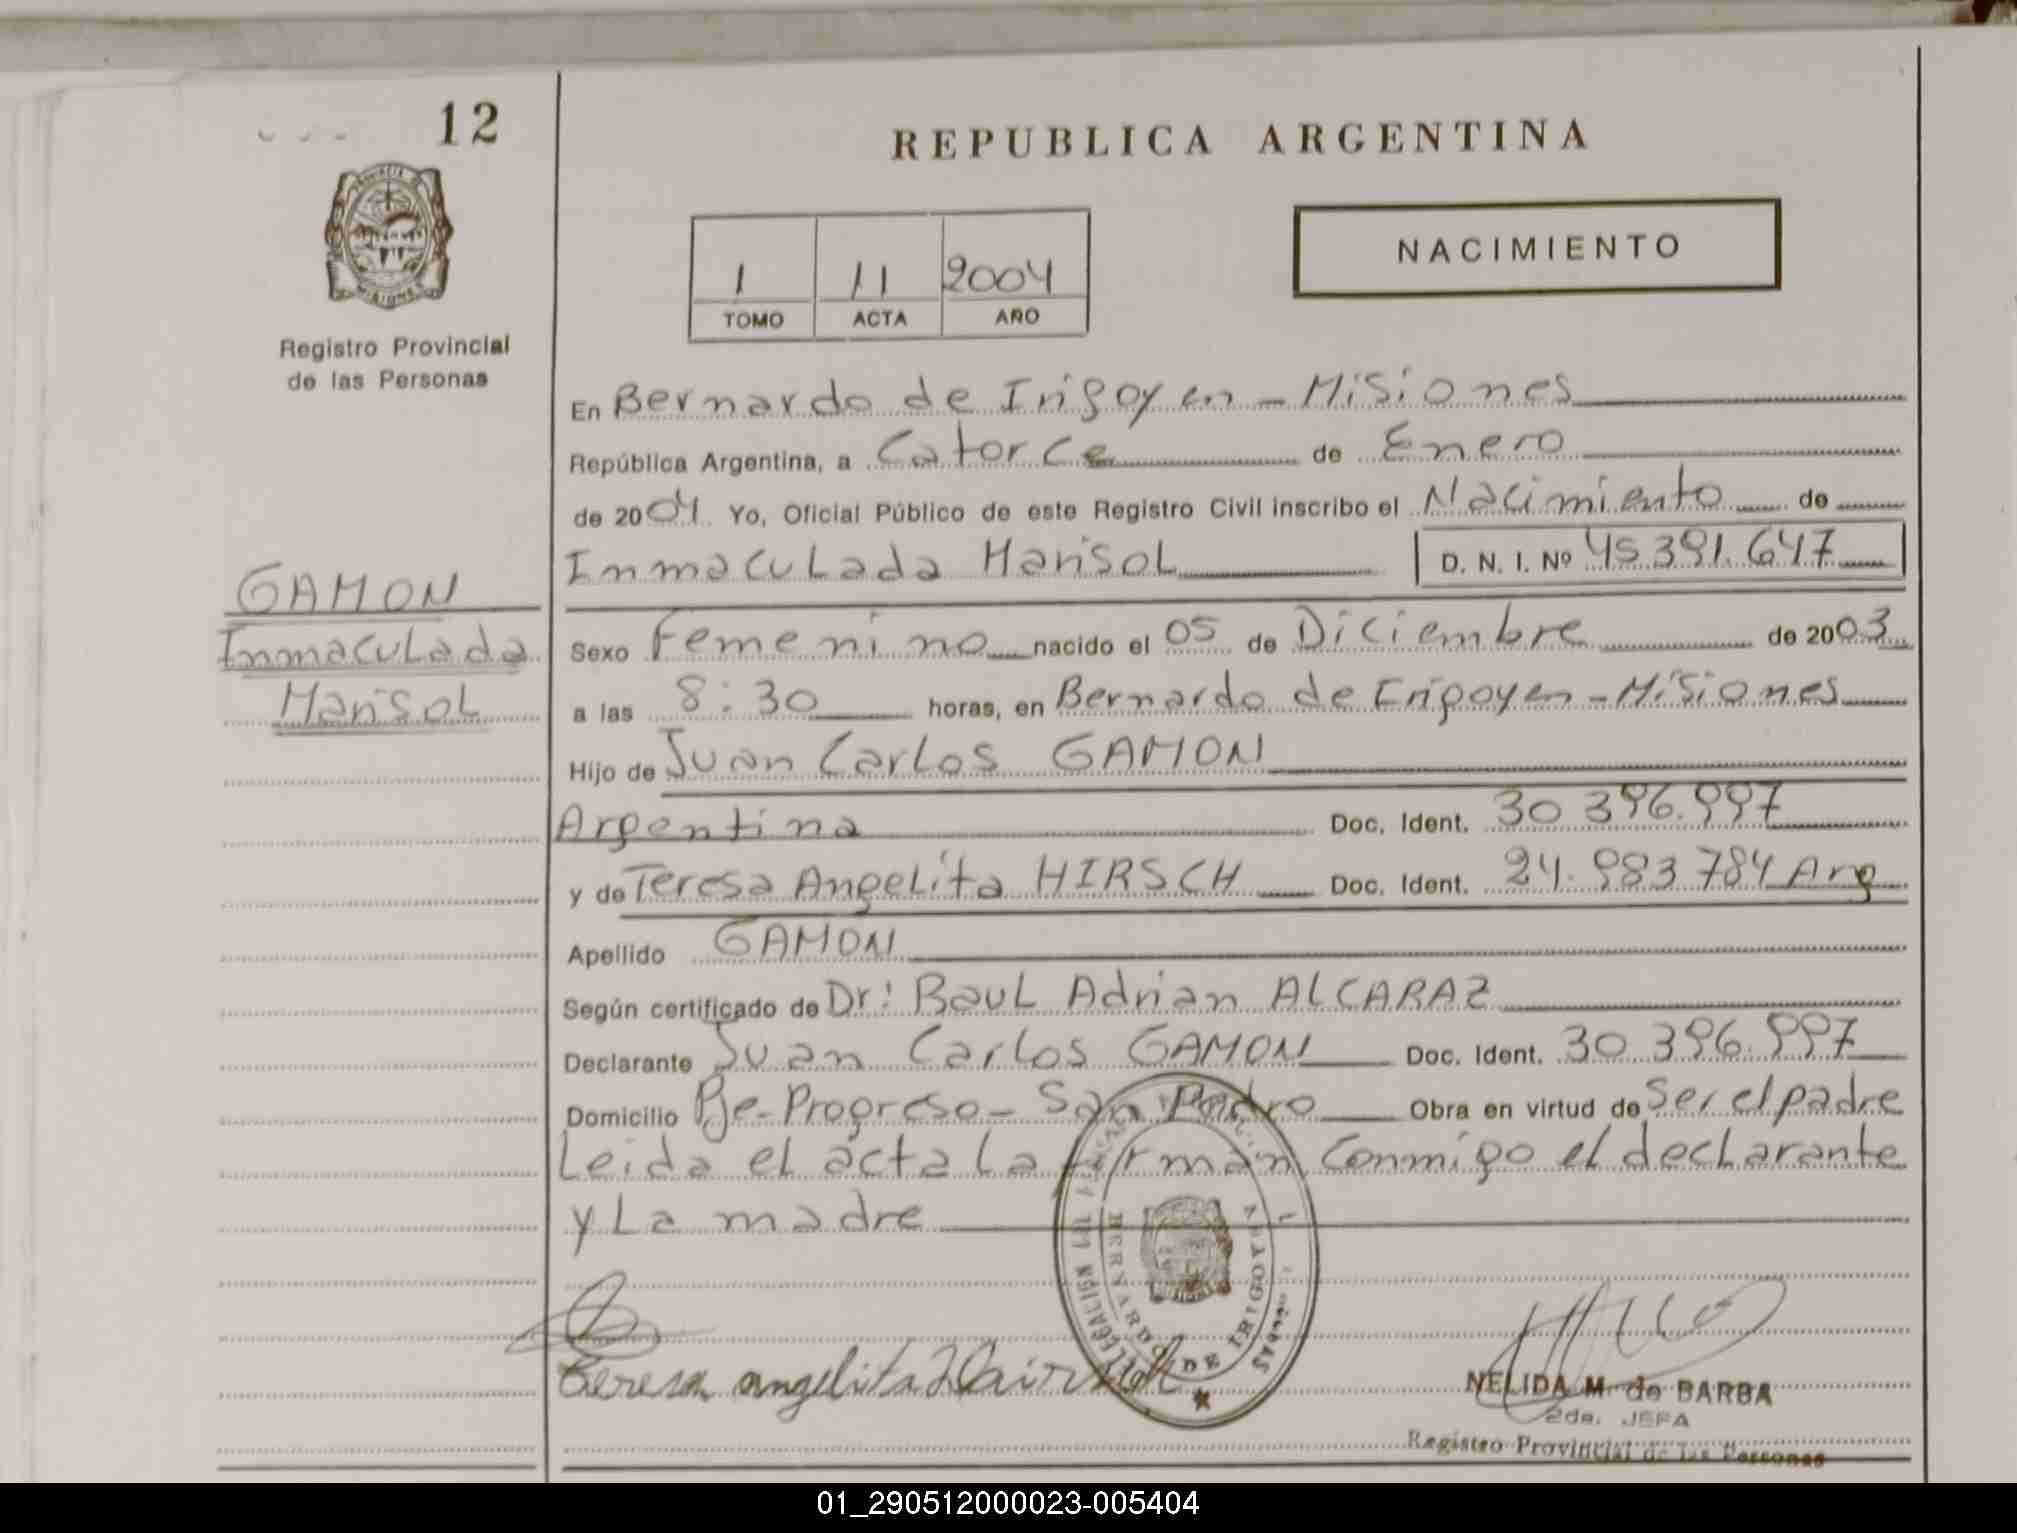 12
REPUBLICA ARGENTINA
NACIMIENTO
1 11 2004
TOMO ACTA AÑO
MISIONES
Registro Provincial
de las Personas
En Bernardo de Irigoyen - Misiones
República Argentina, a Catorce de Enero
de 2004 Yo, Oficial Público de este Registro Civil inscribo el Nacimiento de
Inmaculada Marisol D. N. I. Nº 45.391.647
GAMON
Inmaculada
Marisol
Sexo Femenino nacido el 05 de Diciembre de 2003
a las 8:30 horas, en Bernardo de Irigoyen - Misiones
Hijo de Juan Carlos GAMON
Argentina Doc. Ident. 30 396.997
y de Teresa Angelita HIRSCH Doc. Ident. 24.983 784 Arg
Apellido GAMON
Según certificado de Dr: Raul Adrian ALCARAZ
Declarante Juan Carlos GAMON Doc. Ident. 30 396.997
Domicilio Pje-Progreso- San Pedro Obra en virtud de Ser el padre
Leida el acta la firman conmigo el declarante
y La madre
BERNARDO DE IRIGOYEN
Teresa angelita
NELIDA M. de BARBA
2da. JEFA
Registro Provincial de las Personas
01_290512000023-005404